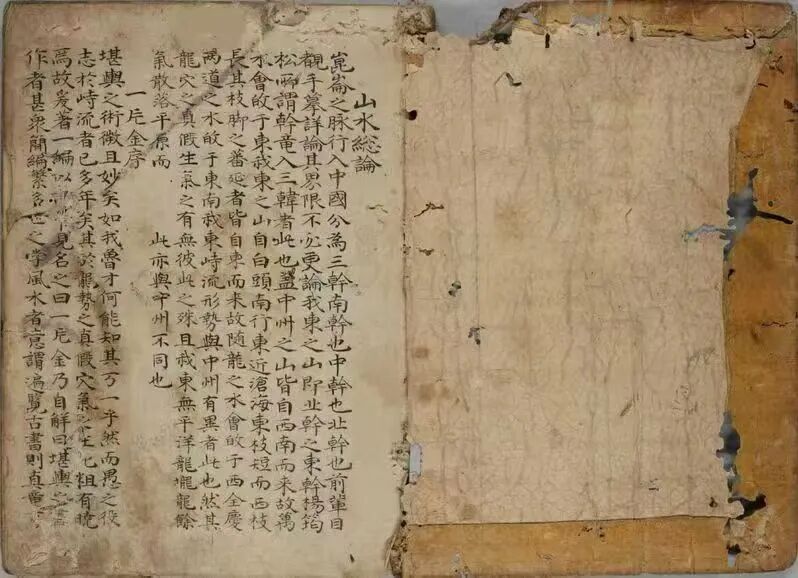 山水総論
崑崙之脉行入中國分為三幹南幹也中幹也北幹也前輩目
觀手摹詳論其界限不必更論我東之山即北幹之東幹楊筠
松所謂幹竜入三韓者此也盖中州之山皆自西南而来故萬
水會皈于東我東之山自白頭南行東近滄海東枝短而西枝
長其枝脚之蕃延者皆自東而来故随龍之水會皈于西全慶
两道之水皈于東南我東峙流形勢與中州有異者此也然其
龍穴之真假生氣之有無彼此之殊且我東無平洋龍壠龍餘
氣散落平原而 此亦與中州不同也
一片金序
堪輿之術微且妙矣如我魯才何能知其万一乎然而愚之役
志於峙流者已多年矣其於龍勢之真假穴氣之生亡粗有曉
焉故爰著一編以 見名之曰一片金乃自解曰堪輿之書
作者甚衆簡編繁多世之学風水者意謂遍覽古書則真竜